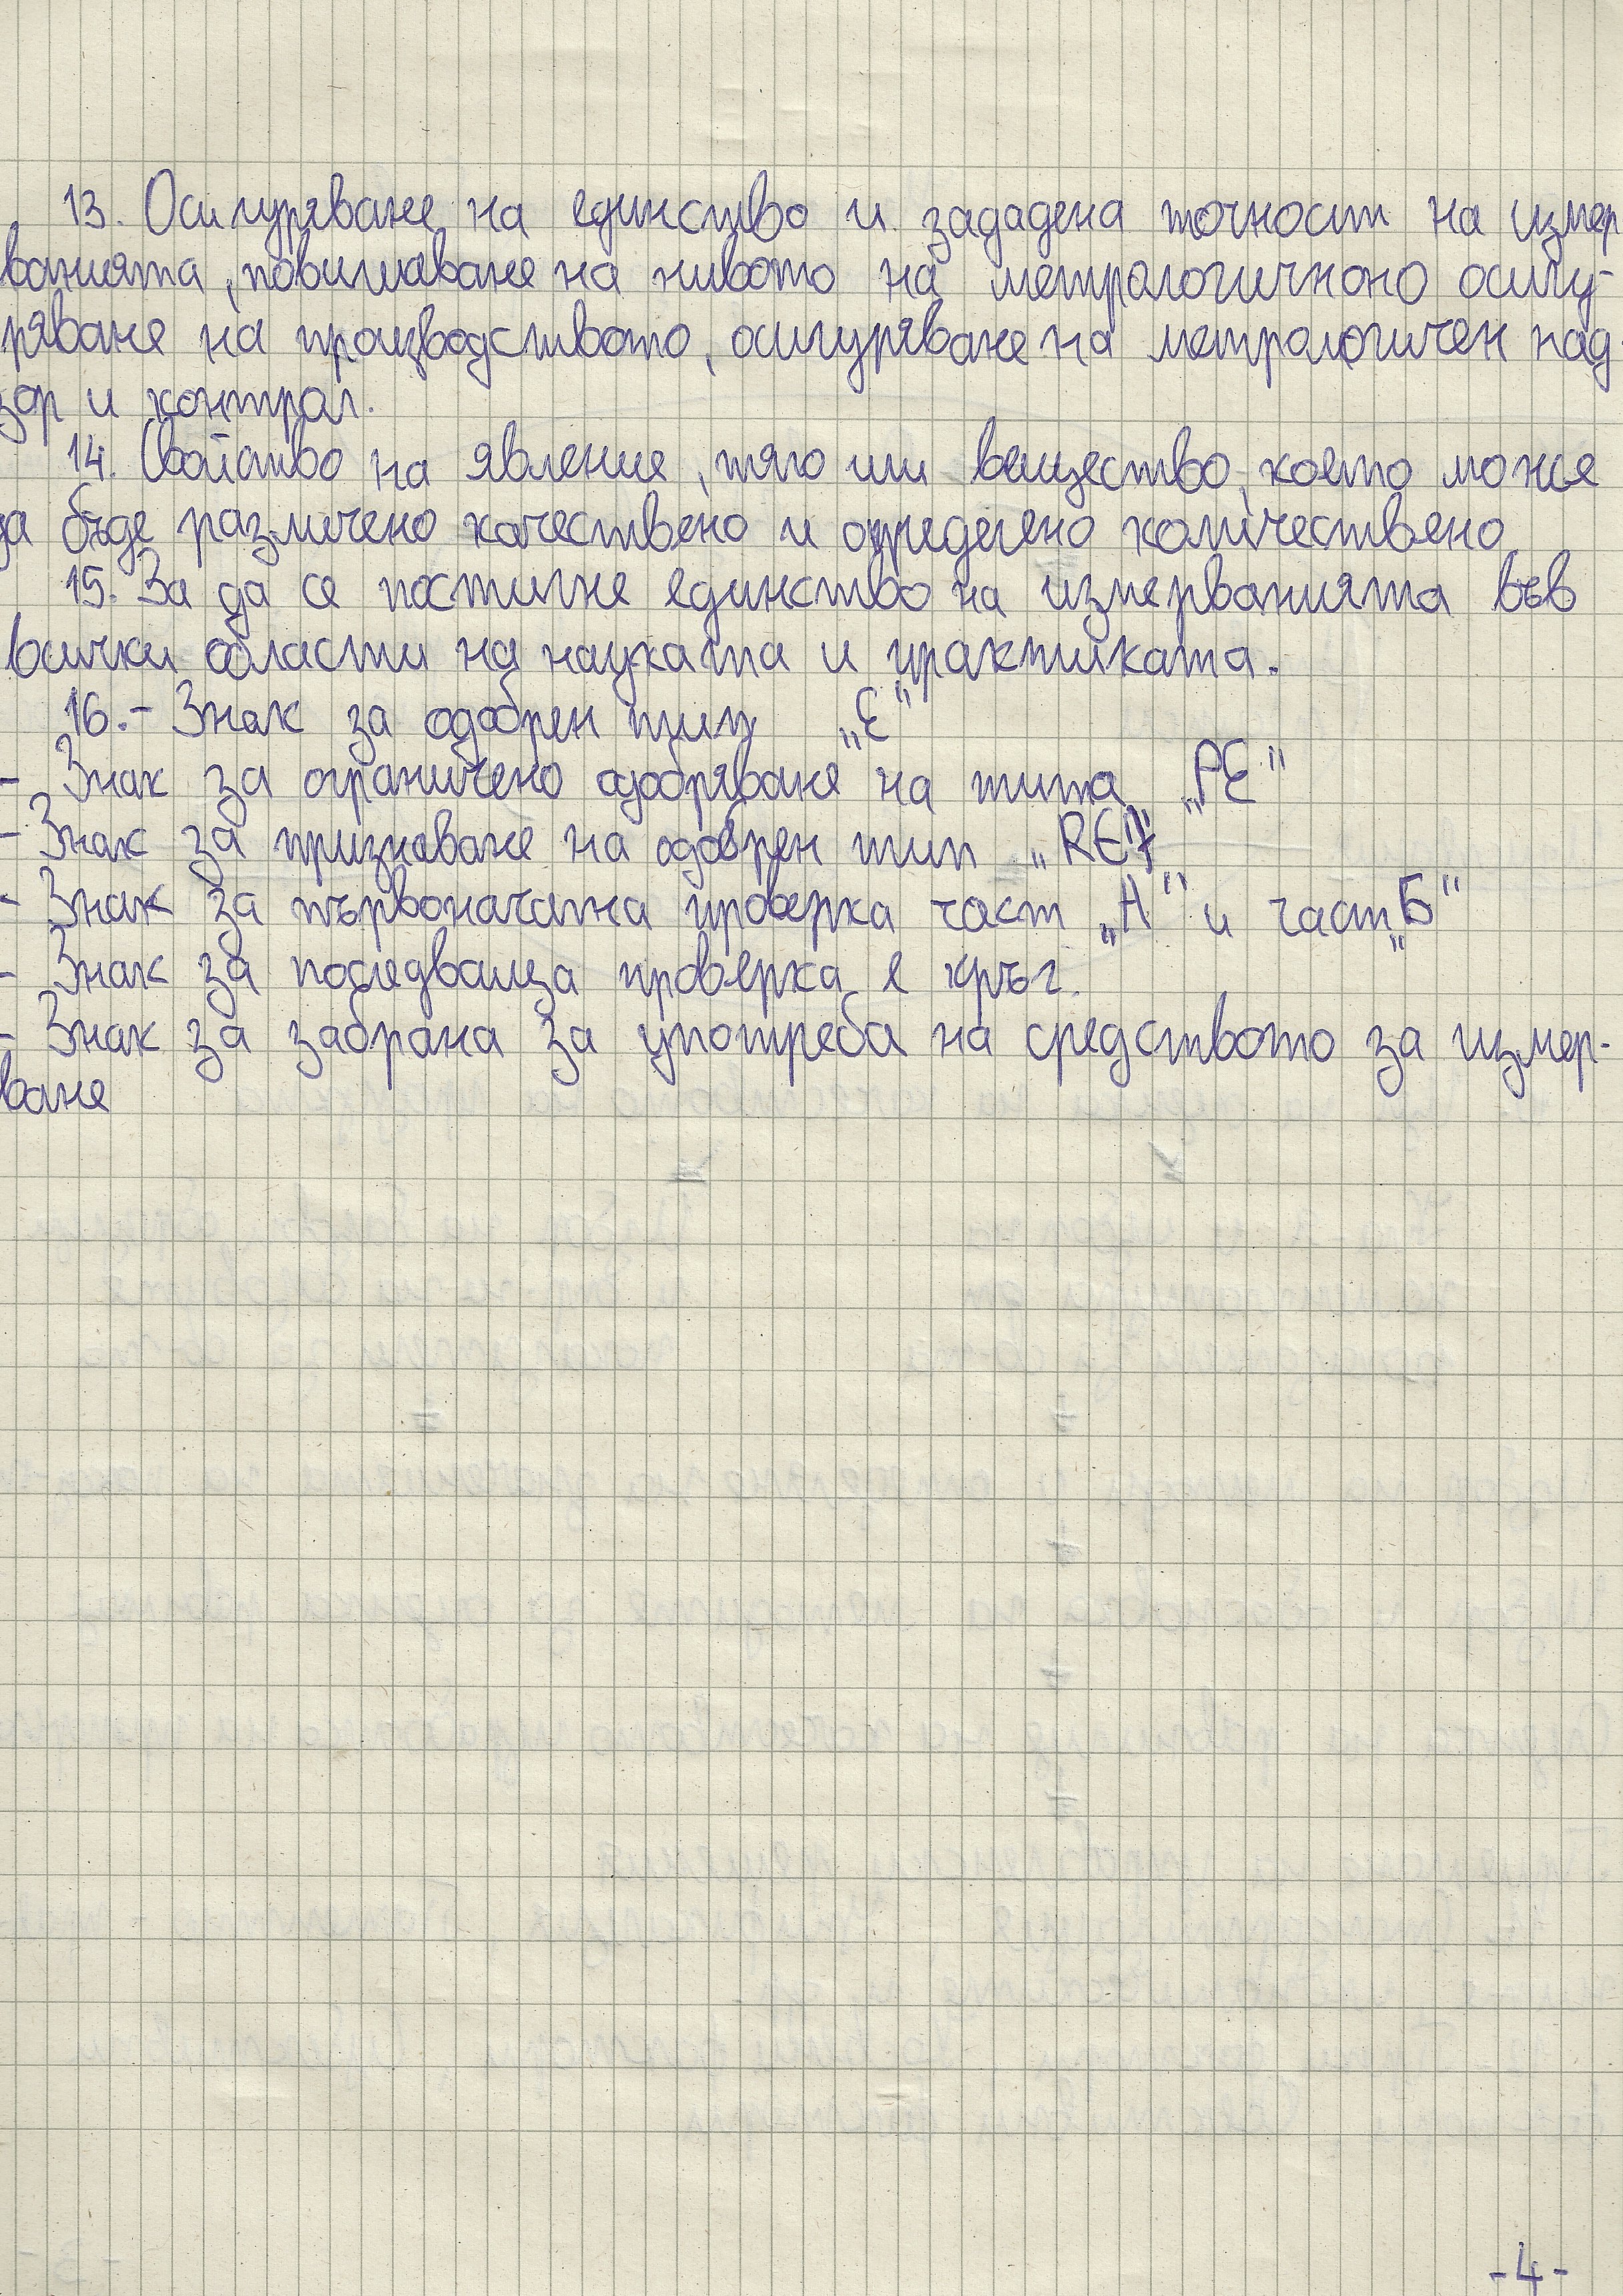 13. Осигуряване на единство и зададена точност на измер
ванията, повишаване на нивото на метрологичноно осигу-
ряване на производството, осигуряване на метрологичен над-
зор и контрол.
14. Свойство на явление, тяло или вещество, което може
да бъде различено качествено и определено количествено
15. За да се постигне единство на измерванията във
всички области на науката и практиката.
16.- Знак за одобрен тип „Е“
- Знак за ограничено одобряване на типа „РЕ“
- Знак за признаване на одобрен тип „RE
- Знак за първоначална проверка част „А“ и част „Б“
- Знак за последваща проверка е кръг.
- Знак за забрана за употреба на средството за измер-
ване
-4-